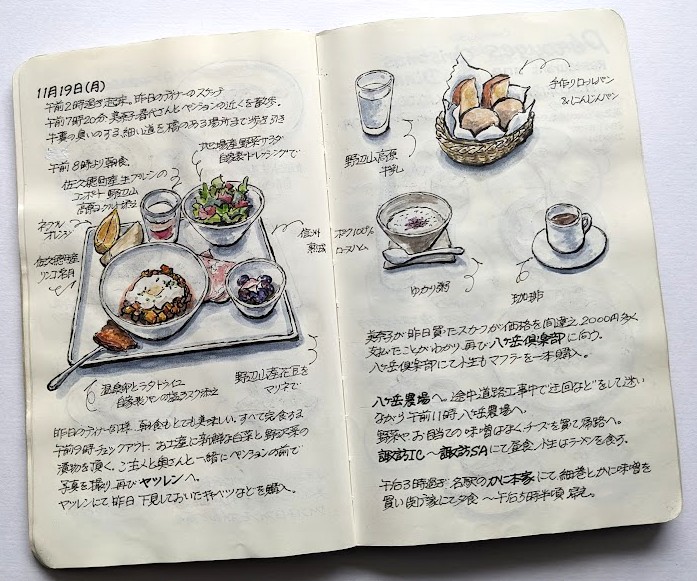 11月19日(月)
午前2時過ぎ起床。昨日のディナーのスケッチ
午前7時20分、美奈子 春代さんとペンションの近くを散歩。
牛糞の臭いのする、細い道を橋のある場所まで歩き引き
午前8時より朝食。
地元場産野菜サラダ
自家製ドレッシングで
佐久穂町産 生プルーンの
コンポート 野辺山
高原ヨーグルト添え
ネーブル
オレンジ
佐久穂町産
リンゴ
信州
熟成
ポーク100%
ロースハム
温泉卵とラタトゥイユ
自家製パンのラスク添え
野辺山産花豆を
マリネで
昨日のディナー同様、朝食もとても美味しい。すべて完食する
午前9時チェックアウト、お土産に新鮮な白菜と野沢菜の
漬物を頂く。ご主人と奥さんと一緒にペンションの前で
写真を撮り、再びヤツレンへ。
ヤツレンにて昨日下見しておいたキャベツなどを購入。
手作りロールパン
&にんじんパン
野辺山高原
牛乳
ゆかり粥
珈琲
美奈子が昨日買ったスカーフが価格を間違え、2000円多く
支払たことがわかり、再び八ヶ岳倶楽部に向う。
八ヶ岳倶楽部にて小生もマフラーを一本購入。
八ヶ岳農場へ。途中道路工事中で迂回などをして迷い
ながら午前11時、八ヶ岳農場へ。
野菜やお目当ての味噌はなく、チーズを買て帰路へ。
諏訪IC〜諏訪SAにて昼食、小生はラーメンを食す。
午后3時過ぎ、名駅のかに本家にて細巻とかに味噌を
買い 我が家にて夕食 〜午后5時半頃